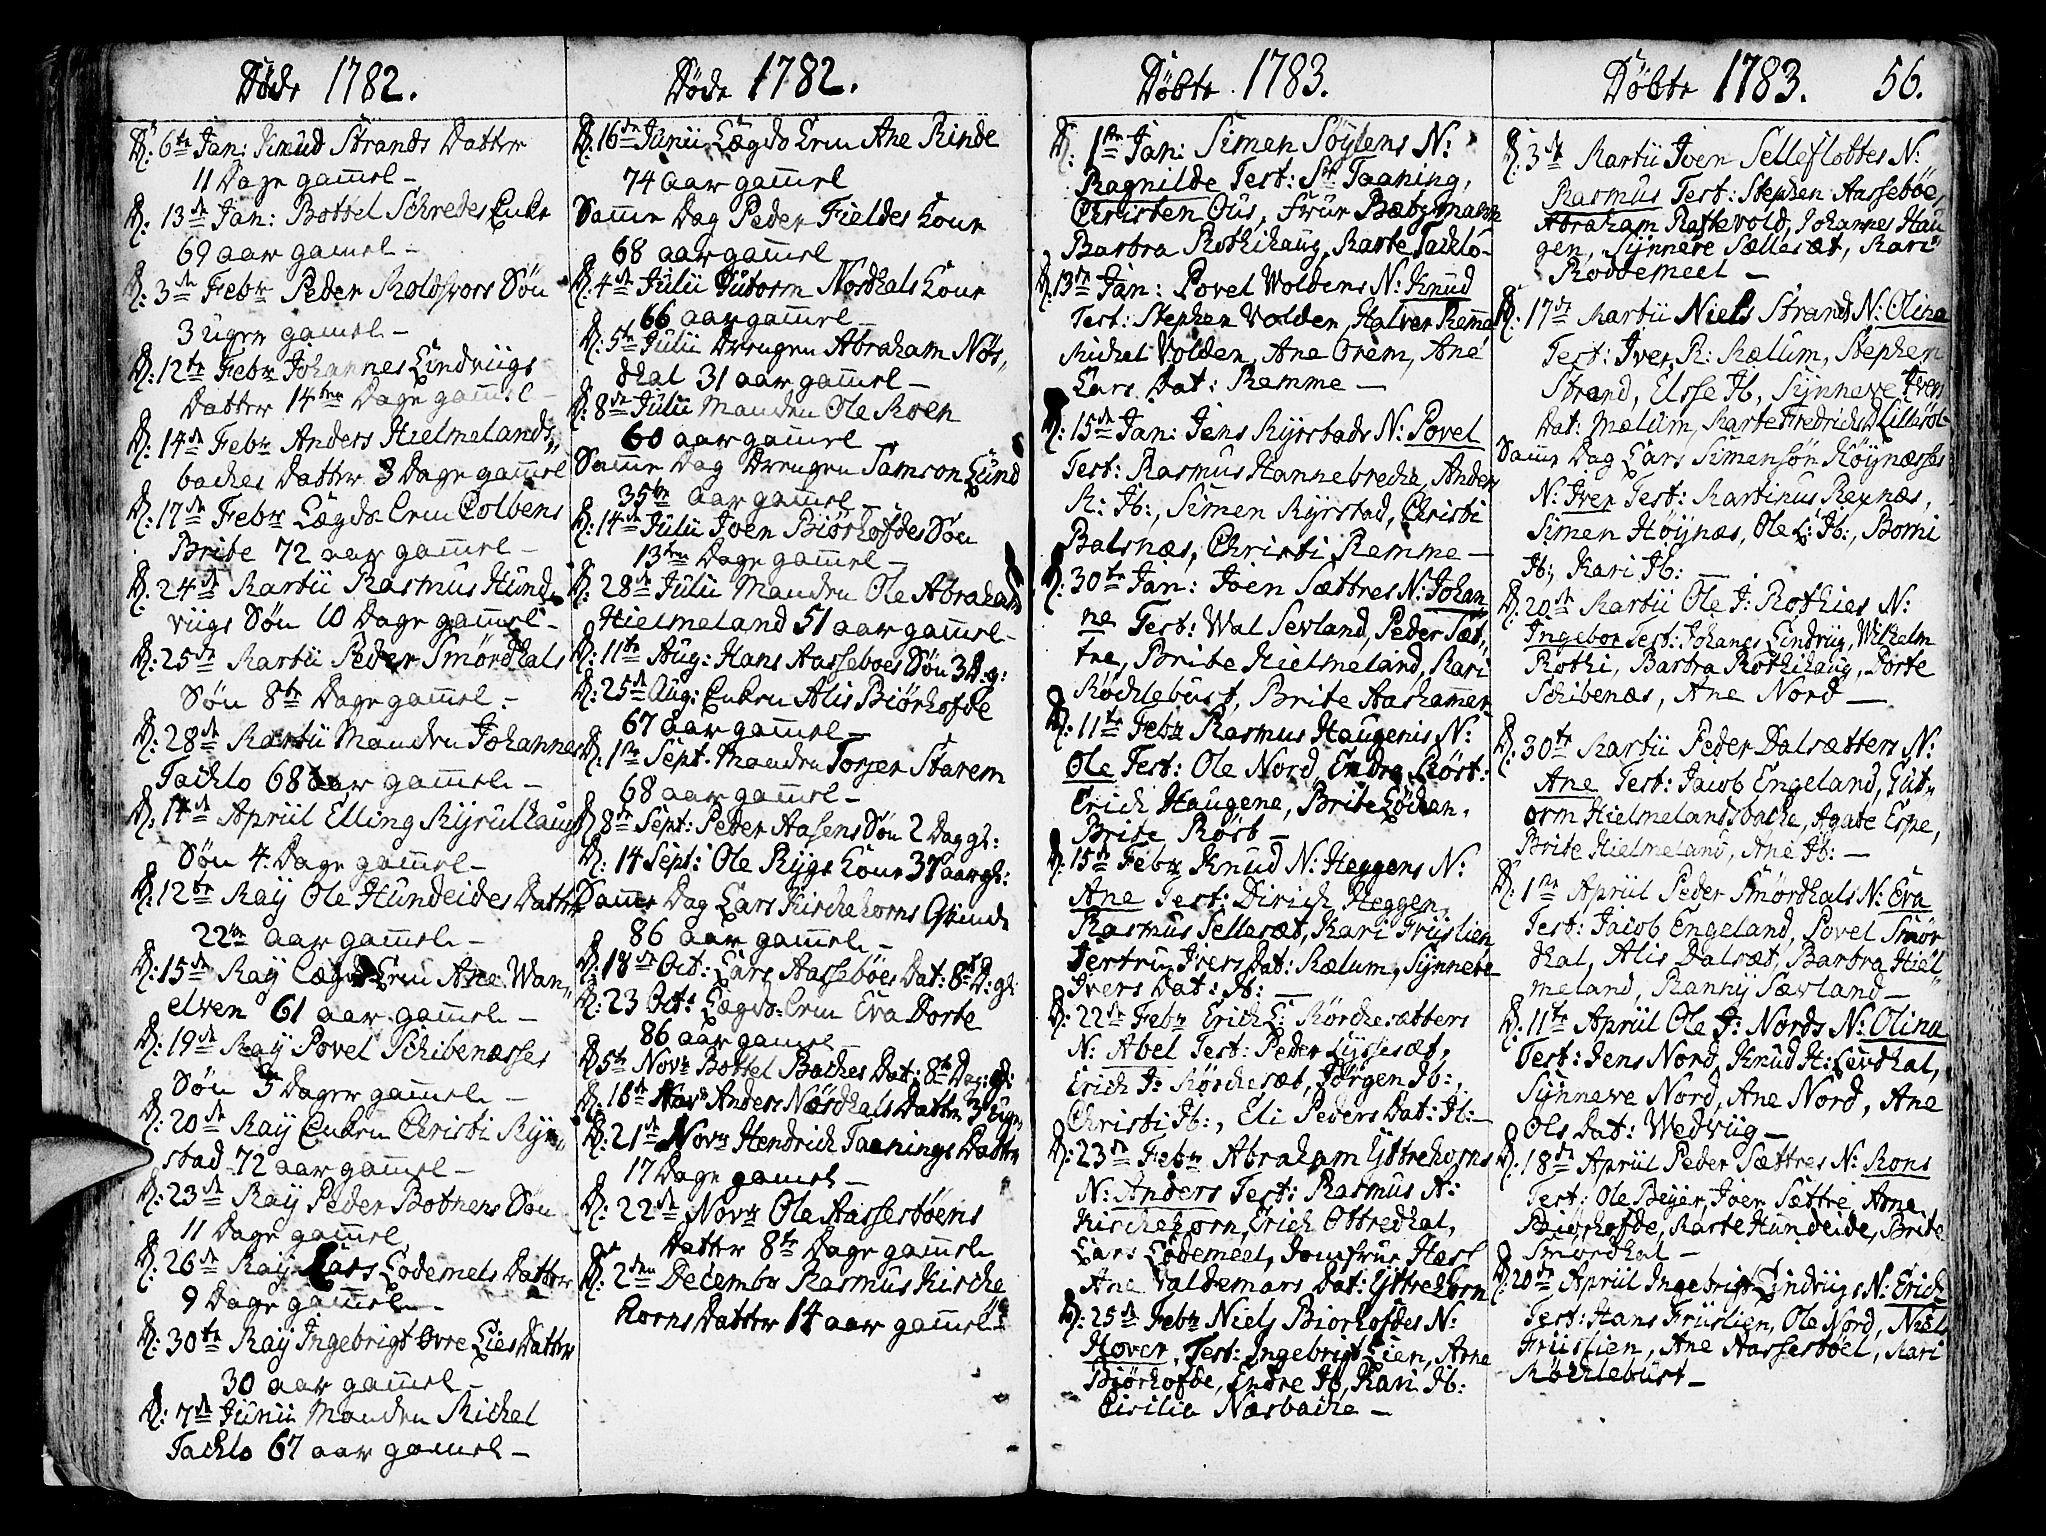 Døde 1782.
D: 6te Jan: Knud Strands Datter
11 Dage gamel –
D: 13de Jan: Bottel Schredes Enke
69 aar gamel –
D: 3de Febr Peder Roldsvors Søn
3 uger gamel –
D: 12te Febr Johannes Lindviigs
Datter 14ten Dage gamel –
D: 14de Febr Anders Hielmelands
backes Datter 3 Dage gamel
D: 17de Febr Lægds Lem Colbens
Brite 72 aar gamel –
D: 24de Martii Rasmus Hund
viigs Søn 10 Dage gamel –
D: 25de Martii Peder Smørdhals
Søn 8te Dage gamel –
D: 28de Martii Manden Johannes
Tachlo 68 aar gamel –
D: 14de Apriil Elling Myrulhaug
Søn 4 Dage gamel –
D: 12te May Ole Hundeides Datter
22de aar gamel –
D: 15de May Lægds Lem Ane Wan
elven 61 aar gamel –
D: 19de May Povel Schibenæsses
Søn 5 Dager gamel –
D: 20de May Enken Christi Myr
stad 72 aar gamel –
D: 23de May Peder Botnens Søn
11 Dage gamel
D: 26de May Lars Lodemels Datter
9 Dage gamel –
D: 30te May Ingebrigt Øvre Lies Datter
30 aar gamel –
D: 7de Junii Manden Michel
Tachlo 67 aar gamel –
Døde 1782.
D: 16de Junii Lægds Lem Ane Rinde
74 aar gamel
Samme Dag Peder Fieldes Kone
68 aar gamel
D: 4de Julii Gutorm Nordhals Kone
66 aar gamel –
D: 5te Julii Drengen Abraham Nør
dhal 31 aar gamel –
D: 8de Julii Manden Ole Moen
60 aar gamel
Samme Dag Drengen Samson Lund
35te aar gamel
D: 14de Julii Joen Biørhofdes Søn
13ten Dage gamel –
D: 28de Julii Manden Ole Abraham
Hielmeland 51 aar gamel –
D: 11te Aug: Hans Aasseboes Søn 3 D: g:
D: 25de Aug: Enken Alis Biørhofde
67 aar gamel –
D: 1ste Sept. Manden Torger Starem
68 aar gamel –
D 8de Sept: Peder Aasens Søn 2 Dag gl:
D: 14 Sept: Ole Rygs Kone 37 aar gl:
Samme Dag Lars Kirchehorns Qvinde
86 aar gamel –
D: 18de Oct: Lars Aassebøes Dat: 8te D: gl:
D: 23 Oct: Lægds Lem Eva Dorte
86 aar gamel –
D 5te Novr Bottel Baches Dat: 8te Dag: gl:
D: 16de Novr Anders Nørdhals Datter 3 ug
D: 21de Novr Hendrich Taanings Datter
17 Dage gamel –
D: 22de Novr Ole Aassestøens
Datter 8te Dage gamel
D: 2den Decembr Rasmus Kirche
horns Datter 14 aar gamel
Døbte 1783.
D: 1ste Jan: Simen Søylens N:
Ragnilde Test: Sr Taaning,
Christen Ous, Frue Bætzmann
Barbra Rothihaug, Marte Tachlo –
D: 13de Jan: Povel Woldens N: Knud
Test: Stephen Volden, Halver Remme
Michel Volden, Ane Orem, Ane
Lars Dat: Remme –
D: 15de Jan: Jens Myrstads N: Povel
Test: Rasmus Hannebreche, Anders
R: Ib:, Simen Myrstad, Christi
Balsnæs, Christi Remme –
D: 30te Jan: Joen Sættres N: Johan
ne Test: Wal Sevland, Peder Sæt
tre, Brite Hielmeland, Mari
Møchlebust, Brite Aashammer
D: 11te Febr Rasmus Haugenis N:
Ole Test: Ole Nord, Endre Røst:
Erich Haugene, Brite Løchen,
Brite Røst –
D: 15de Febr Knud N: Heggens N:
Ane Test: Dirich Heggen,
Rasmus Sellesæt, Kari Friislien
Jertru Ivers Dat: Mælum, Synneve
Ivers Dat: Ib: –
D: 22de Febr Erich E: Mørchesætters
N: Abel Test: Peder Lyssesæt,
Erich J: Mørchesæt, Jørgen Ib:,
Christi Ib:, Eli Peders Dat: Ib: –
D: 23de Febr Abraham Yttrehorns
N: Anders Test: Rasmus A:
Kirchehorn, Erich Ottredhal,
Lars Lodemeel, Jomfrue Hess
Ane Valdemars Dat: Yttrehorn
D: 25de Febr Niels Biorhofdes N:
Hover, Test: Ingebrigt Lien, Arne
Biørhofde, Endre Ib, Kari Ib:
Cicilia Næsbache –
Døbte 1783. 56.
D: 3de Martii Iven Selleflottes N:
Rasmus Test: Stephen Aassebøe,
Abraham Rastevold, Johannes Hau
gen, Synneve Sællesæt, Mari
Roddemeel –
D: 17de Martii Niels Strands N: Olina
Test: Iver R: Mælum, Stephen
Strand, Elsse Ib, Synneve Iven
Dat: Mælum, Marte Fredrichs Dat:
Samme Dag Lars Simensøn Høynæsses
N: Iver Test: Martinus Reynæs,
Simen Høynæs, Ole L: Ib:, Borni
Ib:, Kari Ib: –
D: 20de Martii Ole J: Rothies N:
Ingebor Test: Johanes Lindviig, Wilhelm
Rothi, Barbra Rothihaug, Dorte
Schibenæs, Ane Nord –
D: 30te Martii Peder Dalsætters N:
Ane Test: Jacob Engeland, Gut
orm Hielmelandsbache, Agate Espe,
Brite Hielmeland, Ane Ib: –
D: 1ste Apriil Peder Smørdhals N: Eva
Test: Jacob Engeland, Povel Smør
dhal, Alis Dalsæt, Barbra Hiel
meland, Ranny Sævland –
D: 11te Apriil Ole J: Nords N: Olina
Test: Jens Nord, Knud H: Levdhal,
Synneve Nord, Ane Nord, Ane
Ols Dat: Wedviig –
D: 18de Apriil Peder Sættres N: Mons
Test: Ole Beyer, Joen Sættre, Arne
Biørhofde, Marte Hundeide, Brite
Smørdhal –
D: 20de Apriil Ingebrigt Lindviigs N: Erich
Test: Hans Friislien, Ole Nord, Niels
Friislien, Ane Aassestøel, Mari
Møchlebust –